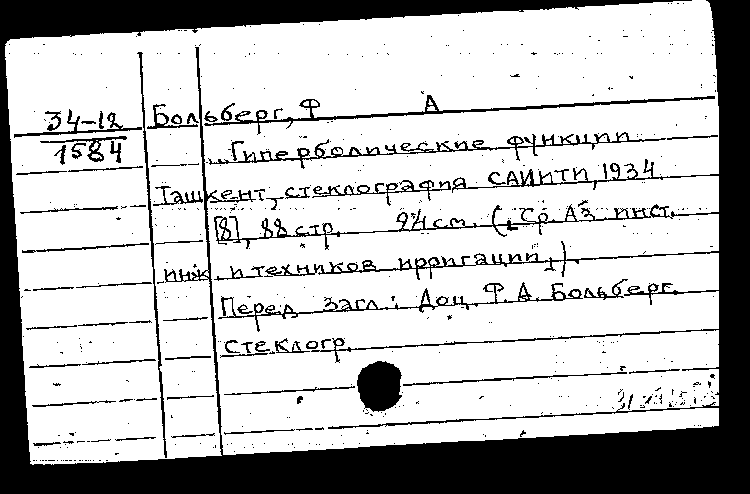 34-12
1584
Больберг, Ф А
...Гиперболические функции
Ташкент, стеклография САИИТИ, 1934
[8], 88 стр. 24 см. (Ср. Аз. инст.
инж. и техников ирригации).
Перед загл.: Доц. Ф. А. Больберг.
стеклогр.